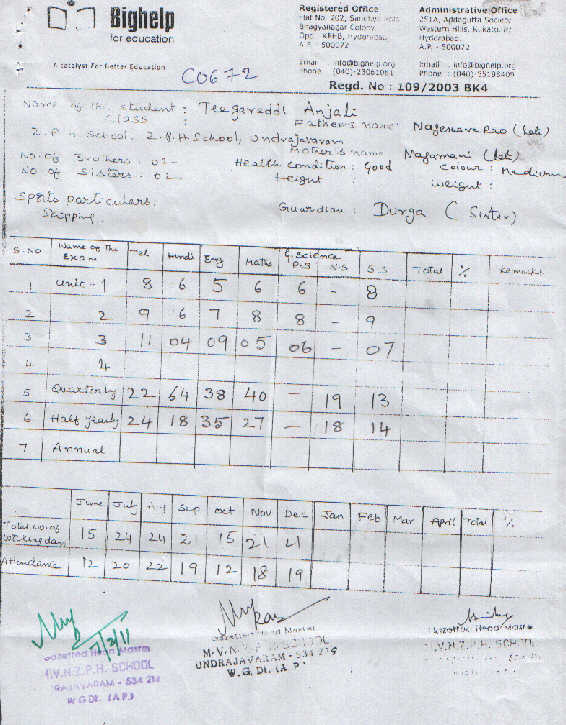 Bighelp
for education
A catalyst For Better Education
Registered Office
Flat No. 202,
Bhagyanagar Colony
Opp. KPHB, Hyderabad
A.P. - 500072
Email : info@bighelp.org
Phone : (040)-23061061
Administrative Office
251A, Addagutta Society
Western Hills, Kukatpally
Hyderabad.
A.P. - 500072
Email : info@bighelp.org
Phone : (040)-55193409
C0672
Regd. No : 109/2003 BK4
Name of the student : Teegareddi Anjali
Class :
Father's name Nageswara Rao (late)
Z.P.H School. Z.P.H School, Undrajavaram
Mother's name Nagamani (late)
No. of Brothers : 02 -
Health condition : Good
Colour : Medium
No of Sisters : 02
Height :
Weight :
Sports particulars:
Skipping
Guardian : Durga ( Sister)
S.NO Name of the Exam Tel Hindi Eng Maths G. Science P.S N.S S.S Total % Remarks
1 Unit - 1 8 6 5 6 6 - 8
2 2 9 6 7 8 8 - 9
3 3 11 04 09 05 06 - 07
4 4
5 Quarterly 22 64 38 40 - 19 13
6 Half yearly 24 18 35 27 - 18 14
7 Annual
June July Aug Sep Oct Nov Dec Jan Feb Mar April Total %
Total no of working days 15 24 24 2 15 21 21
Attendance 12 20 22 19 12 18 19
7/2/11
Gazetted Head Master
M.V.N.Z.P.H. SCHOOL
UNDRAJAVARAM - 534 216
W.G Dt. (A.P.)
Gazetted Head Master
M.V.N.Z.P.H. SCHOOL
UNDRAJAVARAM - 534 216
W.G.Dt. (A.P.)
Gazetted Head Master
M.V.N.Z.P.H. SCHOOL